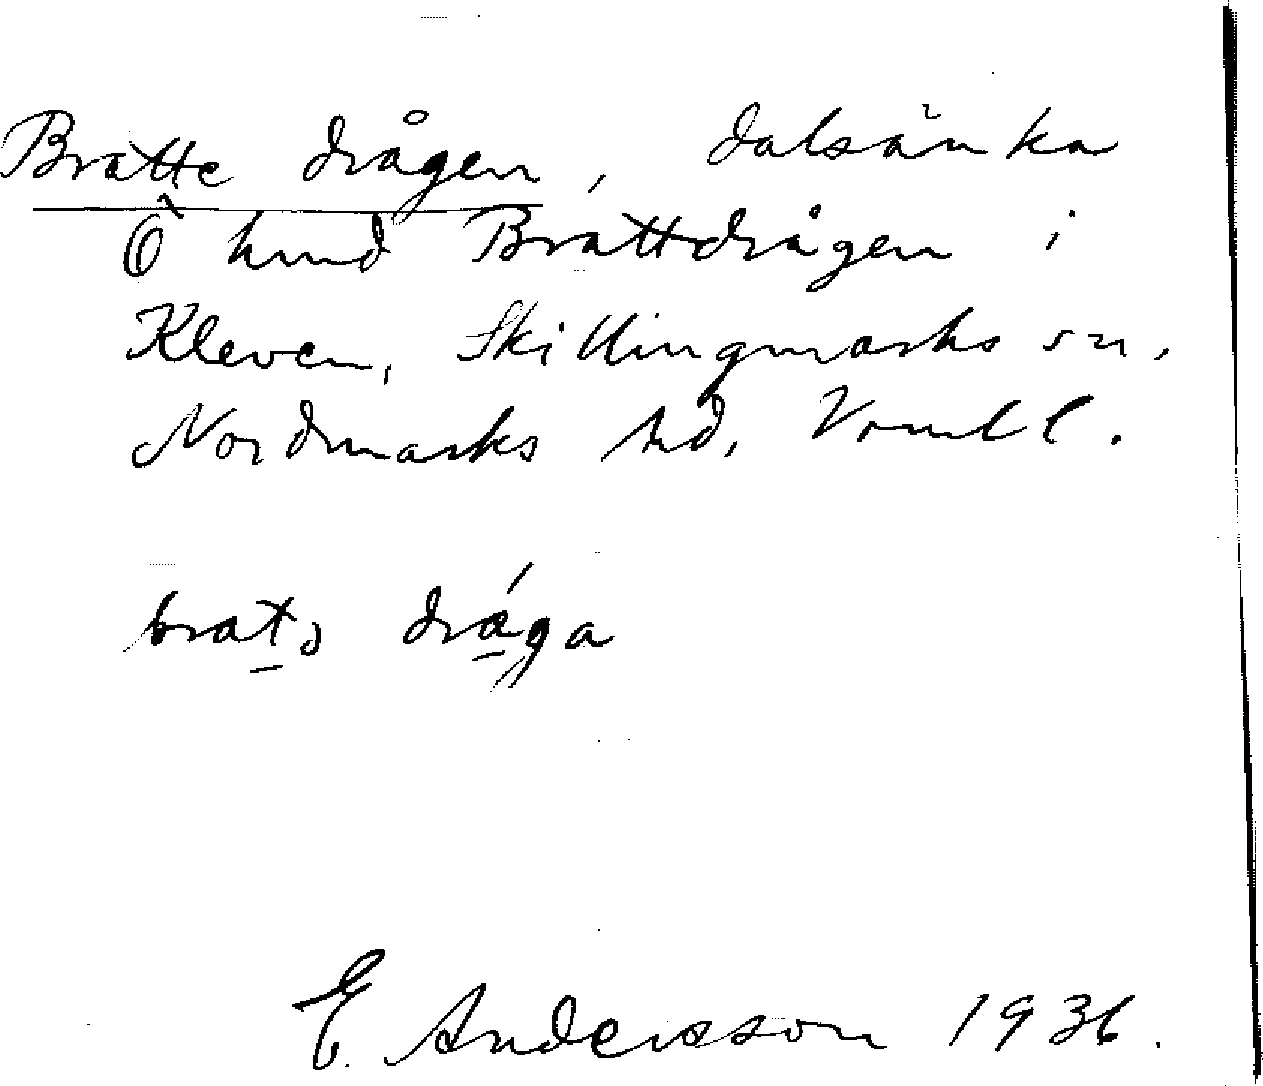 Bratte drågen, dalsänka
Ö hmd Brattdrågen i
Kleven, Skillingmarks sn,
Nordmarks hd, Vrml l.
brata dråga
E. Andersson 1936.